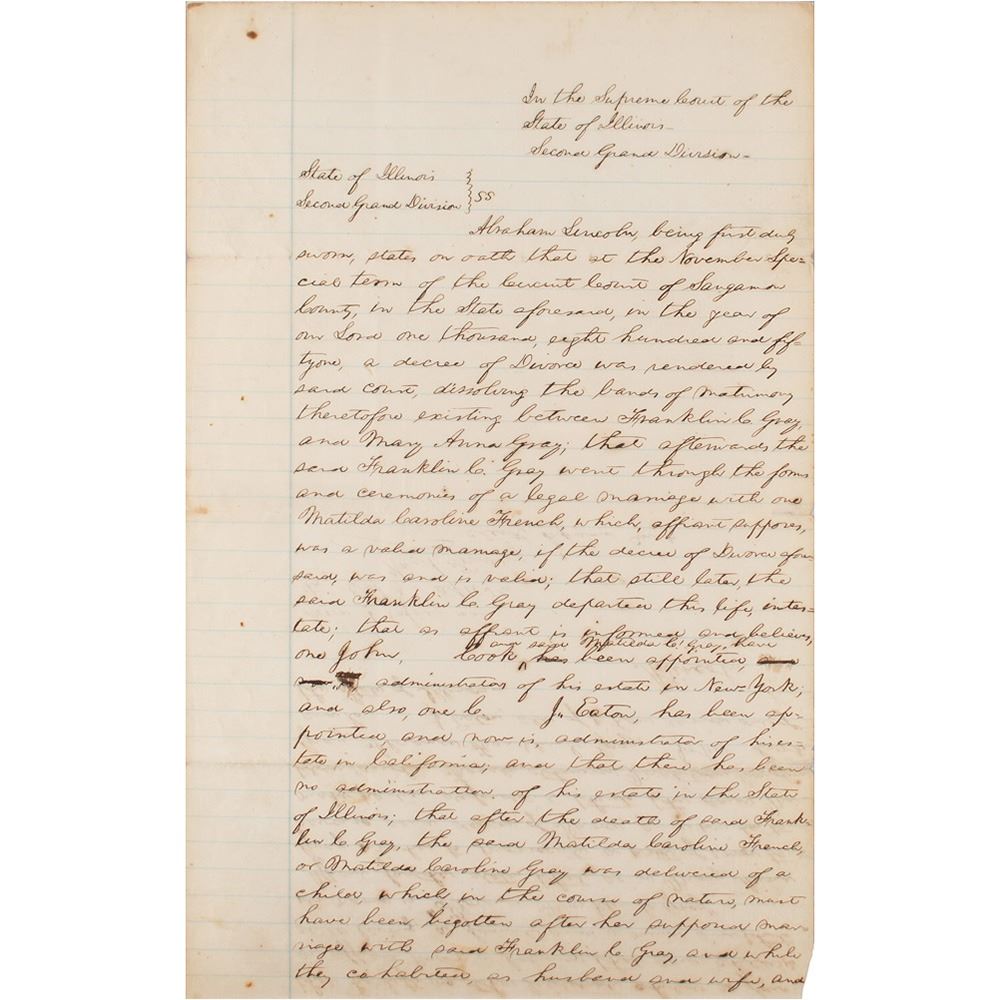 In the Supreme Court of the
State of Illinois—
Second Grand Division—
State of Illinois
Second Grand Division } SS
Abraham Lincoln, being first duly
sworn, states on oath that at the November Spe-
cial term of the Circuit Court of Sangamon
County, in the State aforesaid, in the year of
our Lord one thousand, eight hundred and fif-
tyone, a decree of Divorce was rendered by
said court, dissolving the bands of matrimony
theretofore existing between Franklin C. Gray,
and Mary Anna Gray; that afterwards the
said Franklin C. Gray went through the forms
and ceremonies of a legal marriage with one
Matilda Caroline French, which, affiant supposes,
was a valid marriage, if the decree of Divorce afore-
said, was and is valid; that still later, the
said Franklin C. Gray departed this life, intes-
tate; that as affiant is informed and believes,
and said Matilda C. Gray, have
one John, Cook, has been appointed,
administrators of his estate in New-York;
and also, one C. J. Eaton, has been ap-
pointed, and now is, administrator of his es-
tate in California; and that there has been
no administration of his estate in the State
of Illinois; that after the death of said Frank-
lin C. Gray, the said Matilda Caroline French,
or Matilda Caroline Gray was delivered of a
child, which, in the course of nature, must
have been begotten after her supposed mar-
riage with said Franklin C. Gray, and while
they cohabited, as husband and wife, and